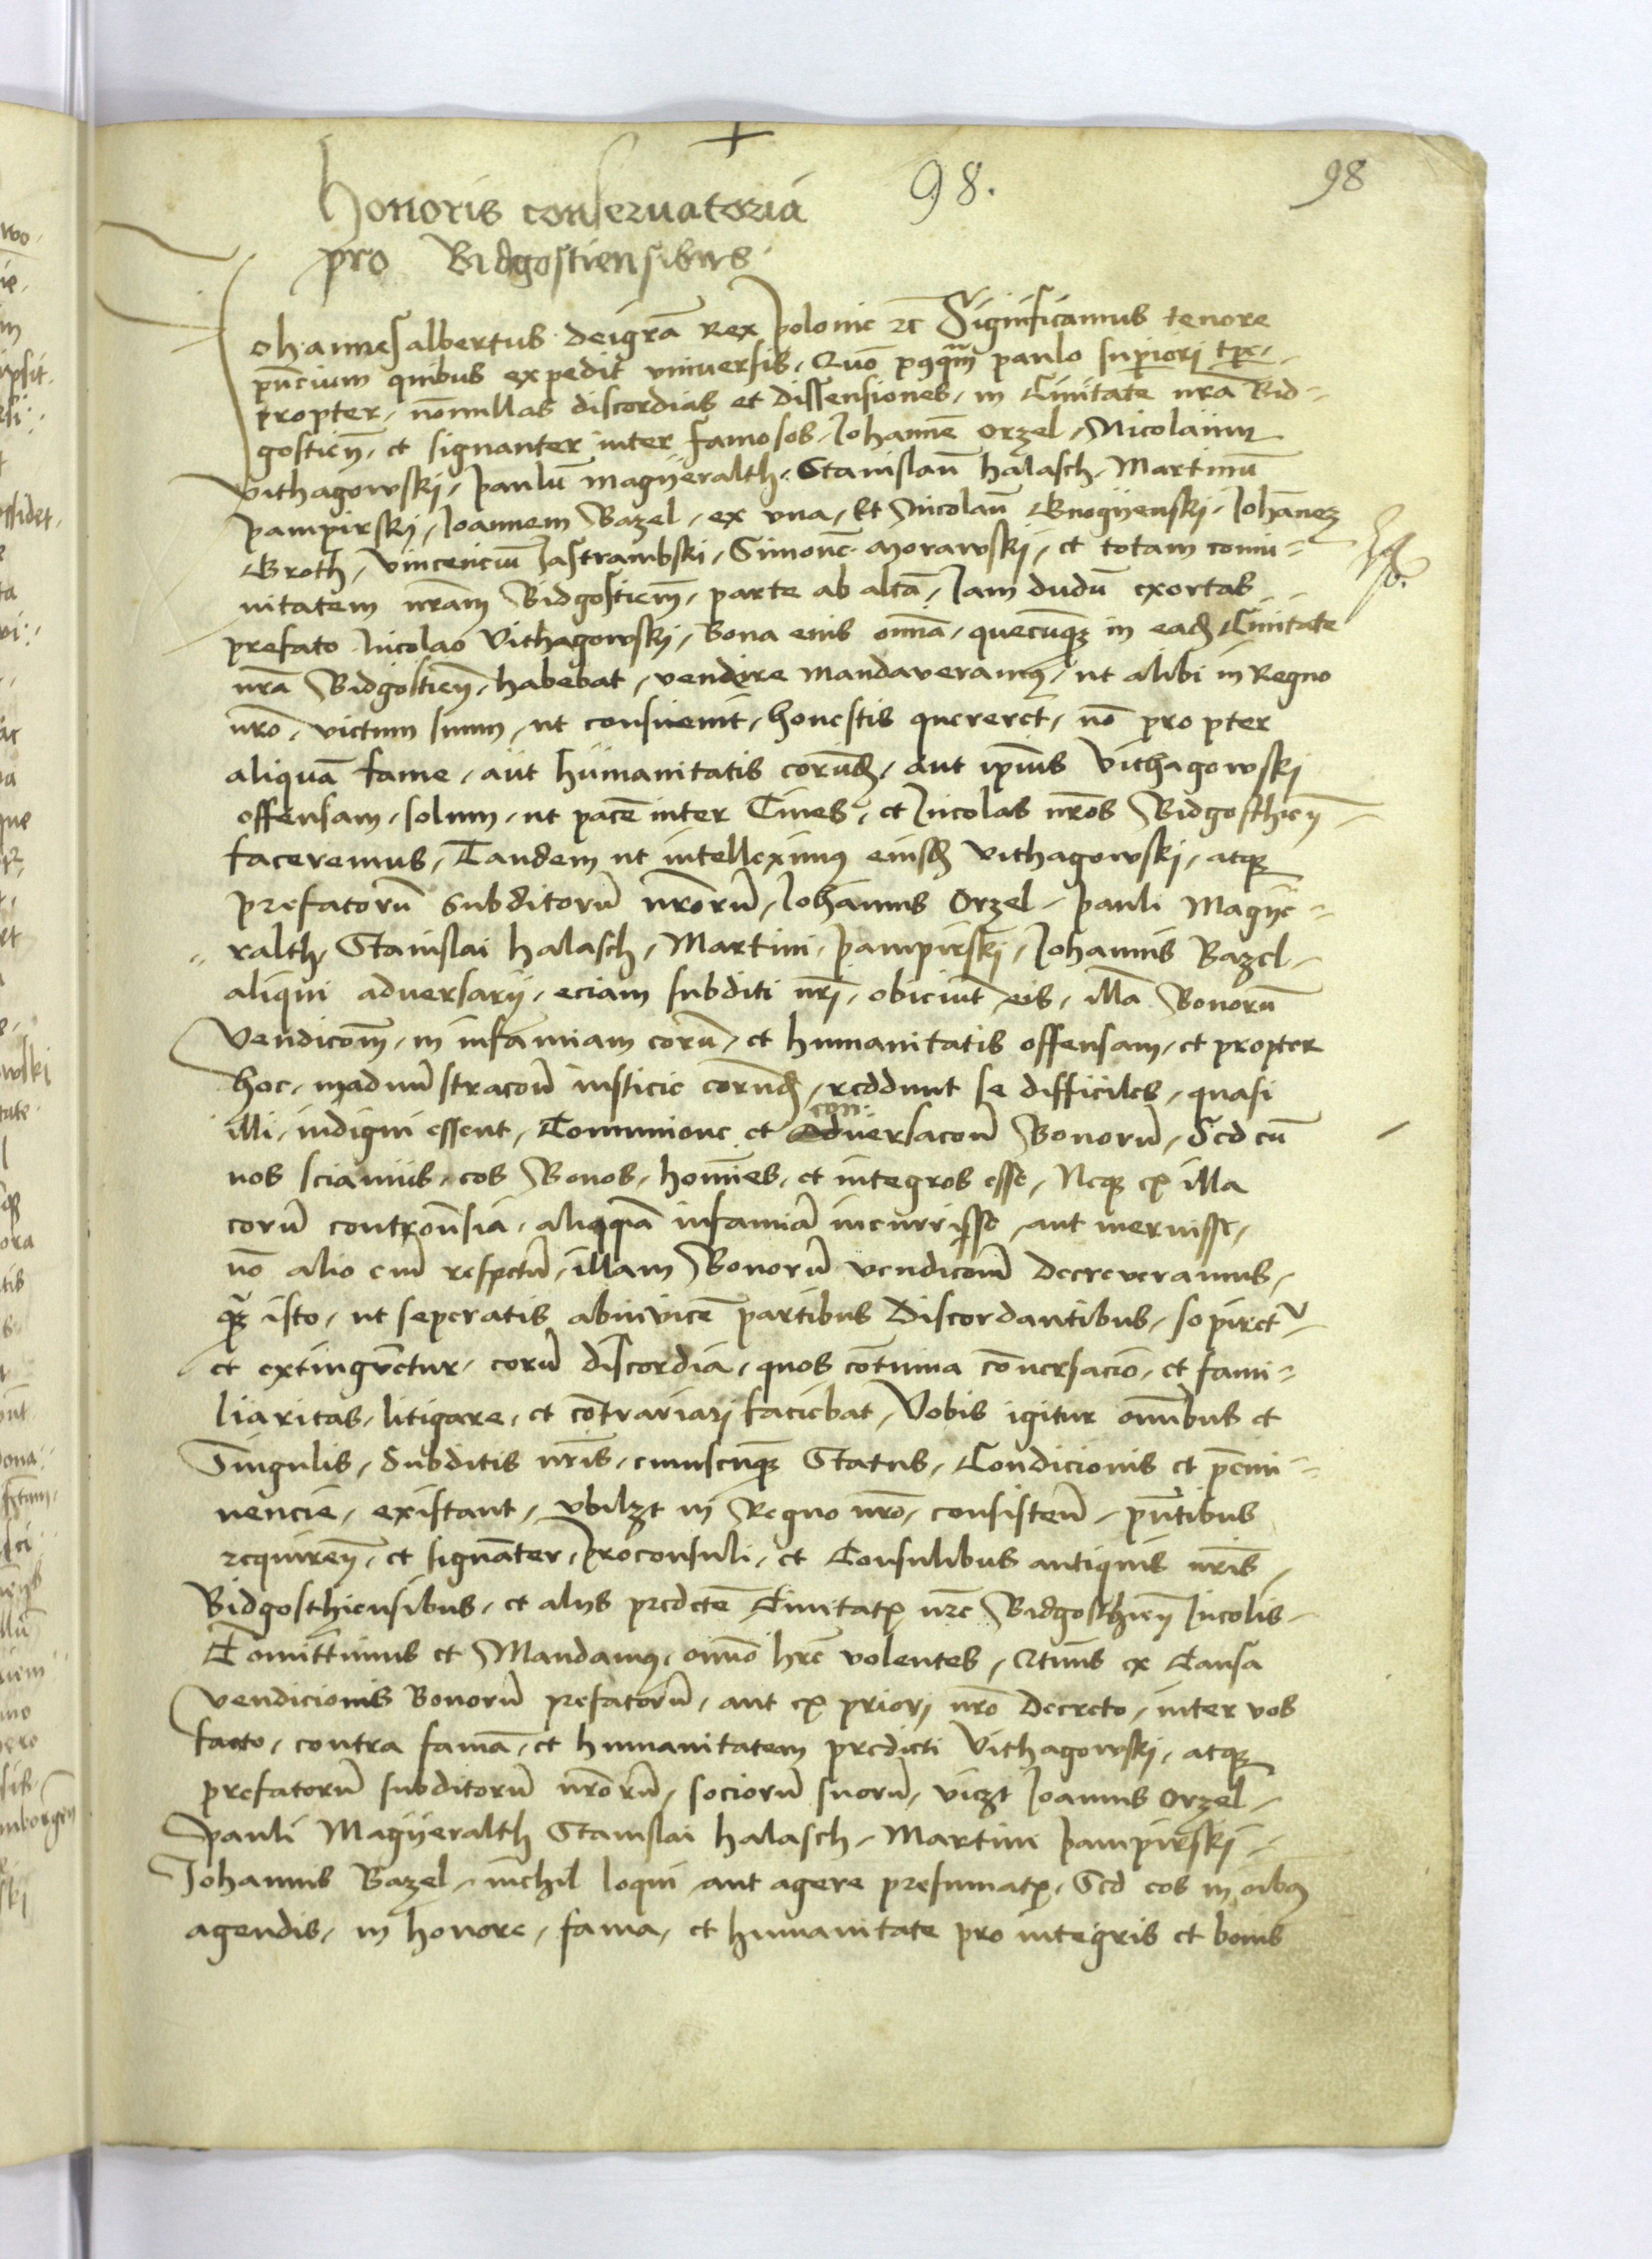 98.
98
Honoris conseruatoria
pro Bidgostiensibus
Johannes albertus deigrā Rex polonie zc Significamus tenore
pñcium quibus expedit vniuersis, Quō p9qm̄ paulo superiori tpe,
propter, nōnullas discordias et dissensiones, in Ciuitate nrā Bid-
gostien̄, et signanter inter famosos, Johannē Orzel, Nicolaum
Vithagowski, paulū magÿeralth, Stanislaū halasch, Martinū
pampirski, Joannem Bazel, ex vna, Et Nicolaū Gnogÿenski, Johānez
Groth, Vincenciū Jastrambski, Simonē Morawski, et totam comu-
nitatem nrām Bidgostien̄, parte ab altā, Jam dudū exortas
prefato Nicolao Vithagowski, Bona eius om̄ia, quecūqz in eadz Ciuitate
nrā Bidgostien̄, habebat, vendere mandaveram9, ut alibi in Regno
nrō, victum suum, ut consueuit, honestis quereret, nō propter
aliquā fame, aut humanitatis eorūdz, aut ip̄ius Vithagowski
offensam, solum, ut pacē inter Ciues, et Jncolas nrōs Bidgosthien̄
faceremus, Tandem ut intellexim9 eiusdz Vithagowski, atqz
prefatorū subditorū nrōrū, Johannis Orzel, pauli Magÿe-
ralth, Stanislai halasch, Martini, pampirski, Johannis Bazel,
aliqui adversarij, eciam subditi nrī, obiciūt eis, illā Bonorū
Vendicōm̄, in infamiam eorū, et humanitatis offensam, et propter
hoc, in adminīstracōn̄ iusticie eorūdz, reddunt se difficiles, quasi
con:
illi, indigni essent, Communione et Aduersacōn̄ Bonorū, Sed cū
nos sciamus, eos Bonos, homīes, et integros esse, Neqz ex illa
eorū controūsia, aliquā infamiā incurrisse, aut meruisse,
nō alio enī respectū, illam Bonorū vendicōm̄ decreveramus,
qz isto, ut seperatis abinvicē partibus Discordantibus, sopiret
et extingūetur, eorū discordia, quos cōtinua cōnersacio, et fami-
liaritas, litigare, et cōtrariari faciebat, Vobis igitur om̄ibus et
Singulis, Subditis nrīs, cuiuscūqz Status, Condicionis et p̄emi-
nencie, existant, vbilzt in Regno nrō, consisten̄, pn̄tibus
requiren̄, et signāter, proconsuli, et Consulibus antiquis nrīs,
Bidgosthiensibus, et alijs predcte Ciuitatis nrē Bidgosthien̄ Jncolis,
Comittimus et Mandam9, om̄io hrē volentes, Qtīus ex Causa
vendicionis Bonorū prefatorū, aut ex priori nrō decreto, inter vos
facto, contra famā, et humanitatem predicti Vithagowski, atqz
prefatorū subditorū nrōrū, sociorū suorū, viczt Joannis Orzel,
pauli Magÿeralth Stanislai halasch, Martini pampirski,
Johannis Bazel, nichil loqui aut agere presumatis, Sed eos in oib9
agendis, in honore, fama, et humanitate pro integris et bonis